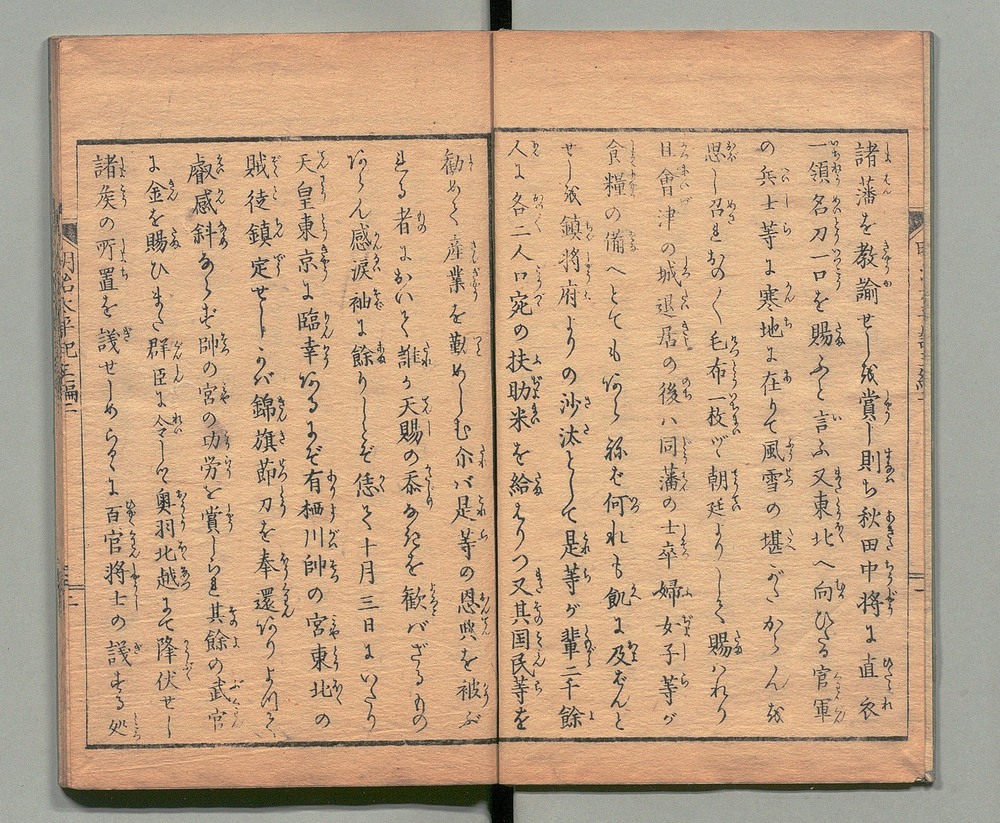 諸藩を教諭せしを賞し則ち秋田中将に直衣
一領名刀一口を賜ふと言ふ又東北へ向ひたる官軍
の兵士等に寒地に在りて風雪の堪がたからんを
思し召れおの〱毛布一枚ヅヽ朝廷よりして賜はれり
且會津の城退居の後ハ同藩の士卒婦女子等が
食糧の備へとてもあらねば何れも飢に及ばんと
せしを鎮将府よりの沙汰として是等が輩二千餘
人に各二人口宛の扶助米を給はりつ又其国民等を
勧めて産業を勤めしむ尒バ是等の恩典を被ぶ
れる者において誰か天賜の忝なきを歓バざるもの
あらん感涙袖に餘りしとぞ恁て十月三日にいたり
天皇東京に臨幸あるにぞ有栖川帥の宮東北の
賊徒鎮定せしかバ錦旗節刀を奉還ありよつて
叡感斜ならず帥の宮の功労を賞しられ其餘の武官
に金を賜ひまた群臣に令して奥羽北越にて降伏せし
諸矦の所置を議せしめらるに百官将士の議する処
明治太平記三編二